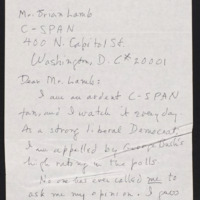 Mr. Brian Lamb
C-SPAN
400 N. Capitol St
Washington, D. C # 20001
Dear Mr. Lamb:
I am an ardent C-SPAN
fan, and I watch it every day.
As a strong liberal Democrat,
I am appalled by George Bush's
high rating in the polls.
No one has ever called me to
ask me my opinion. I pass